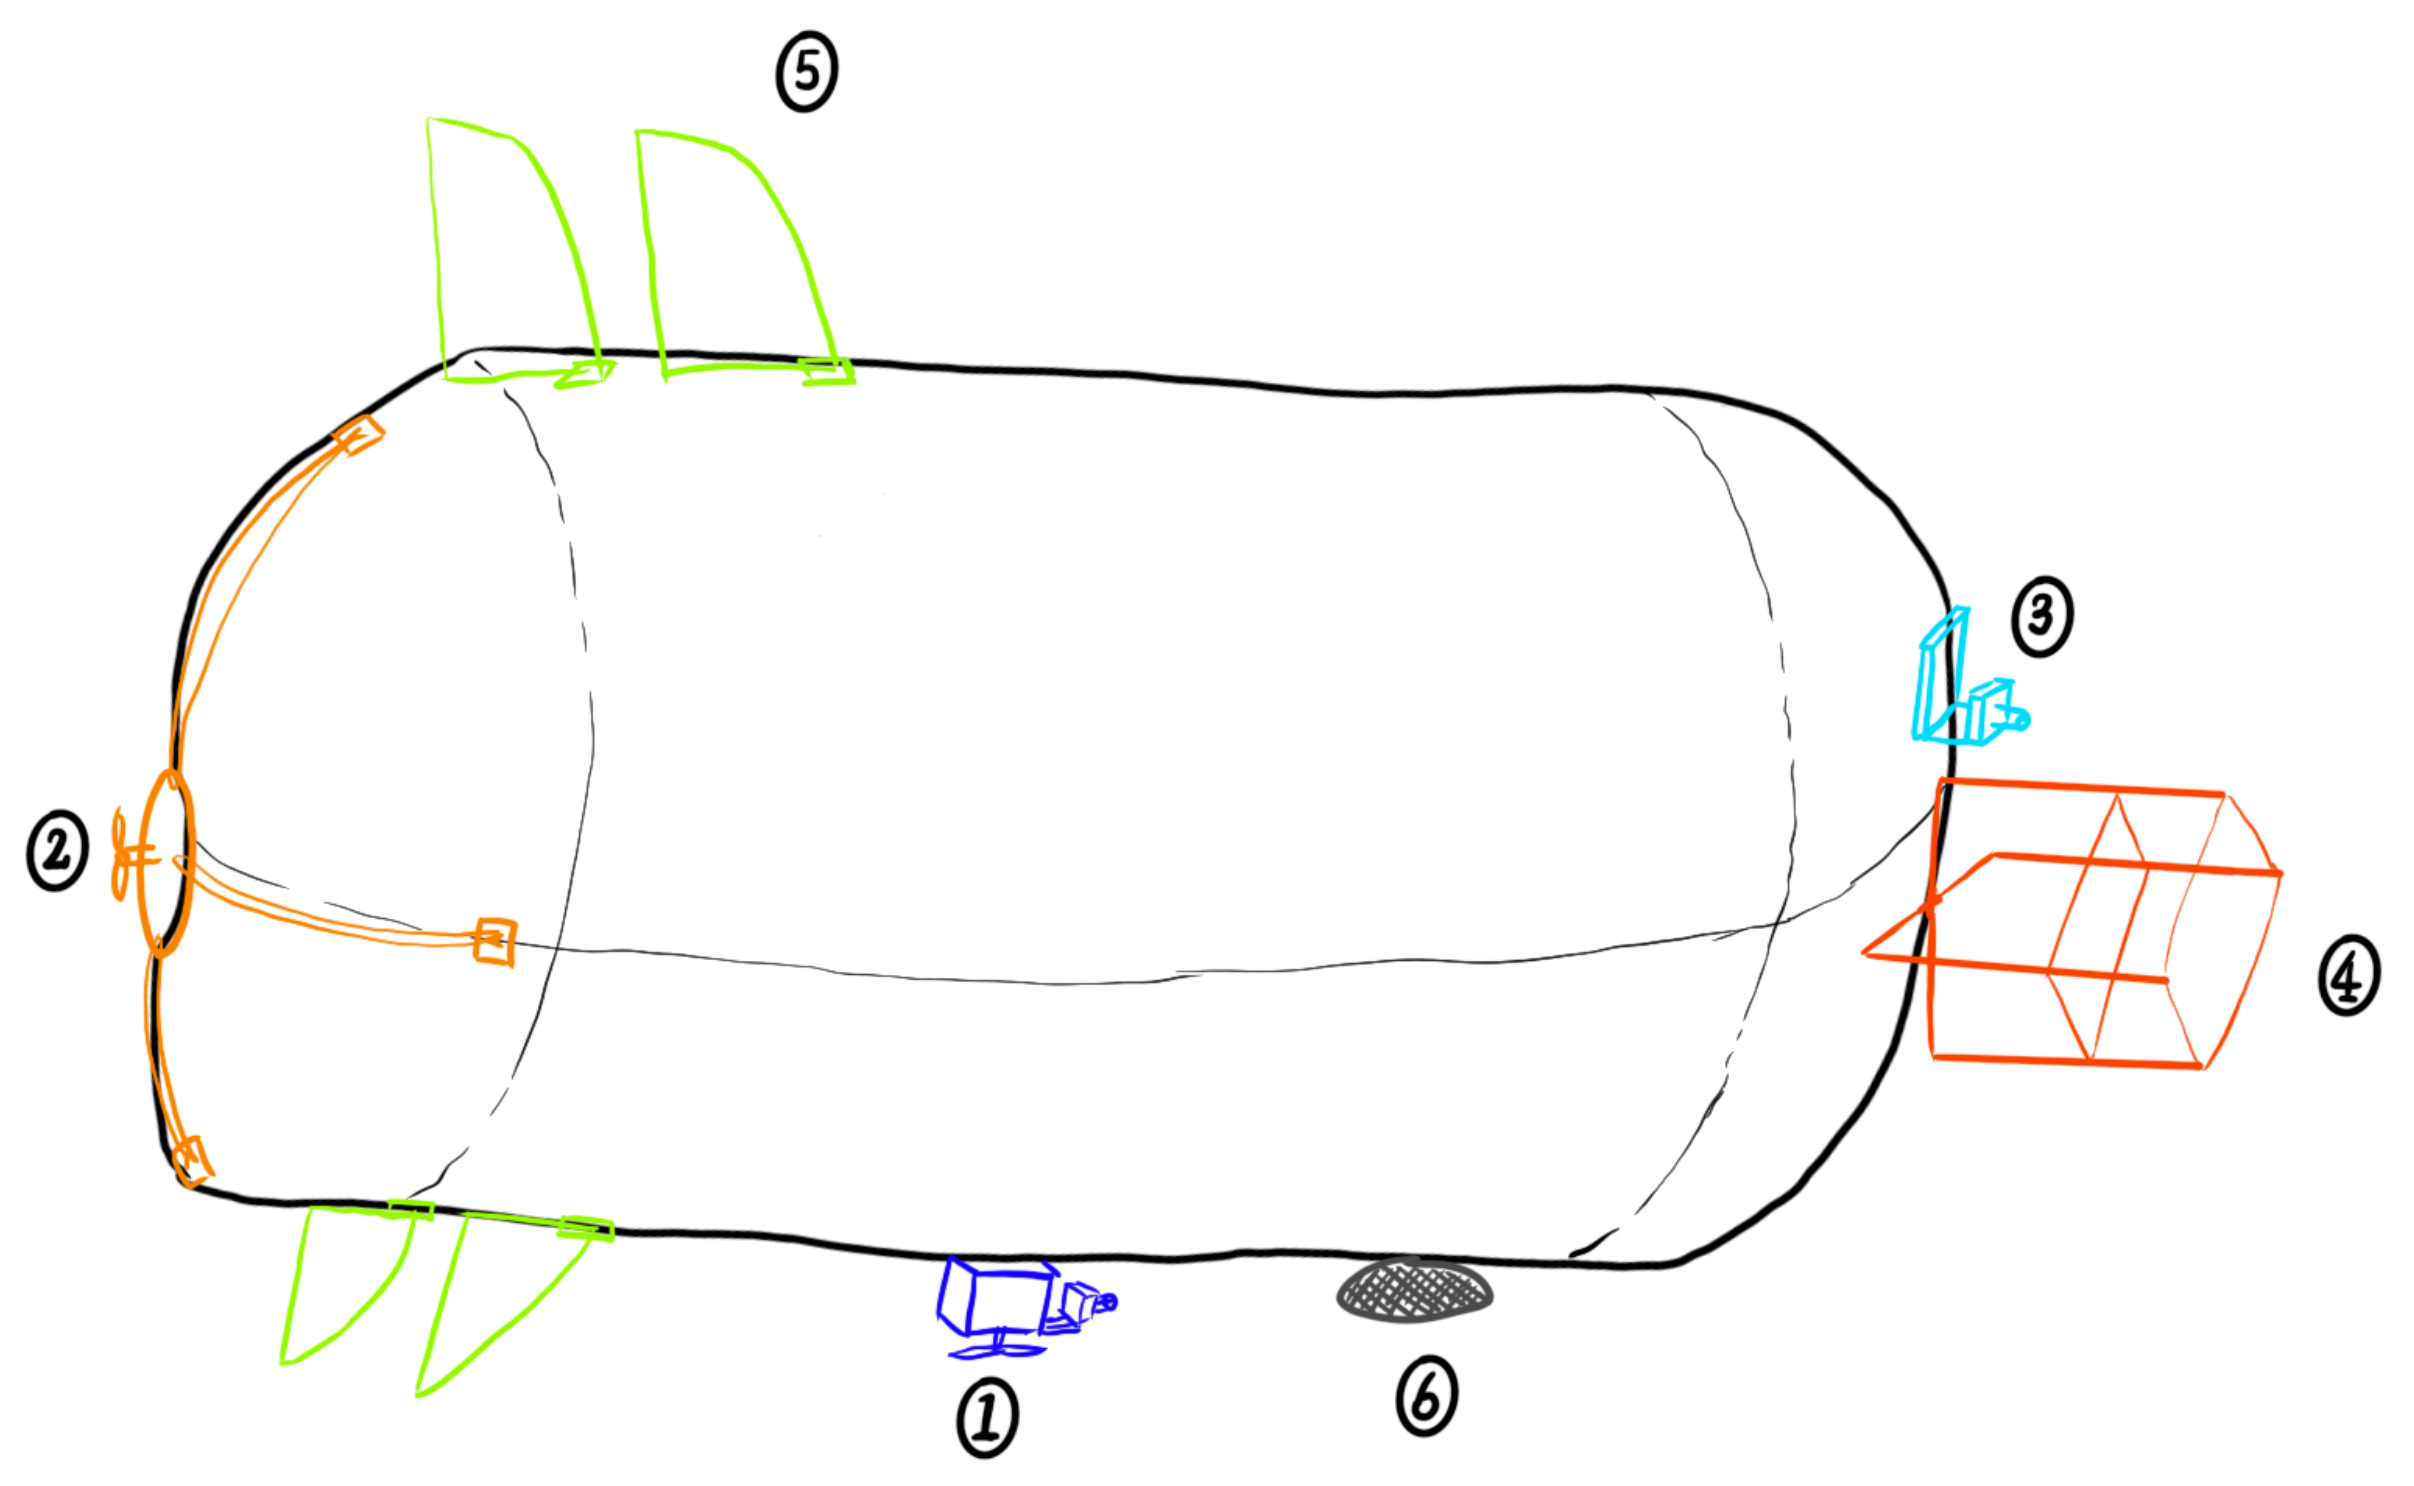 5
3
2
4
1
6